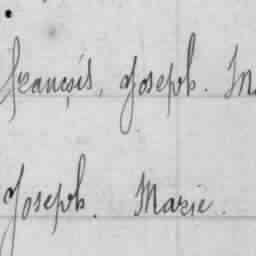 François, Joseph. M
Joseph. Marie.